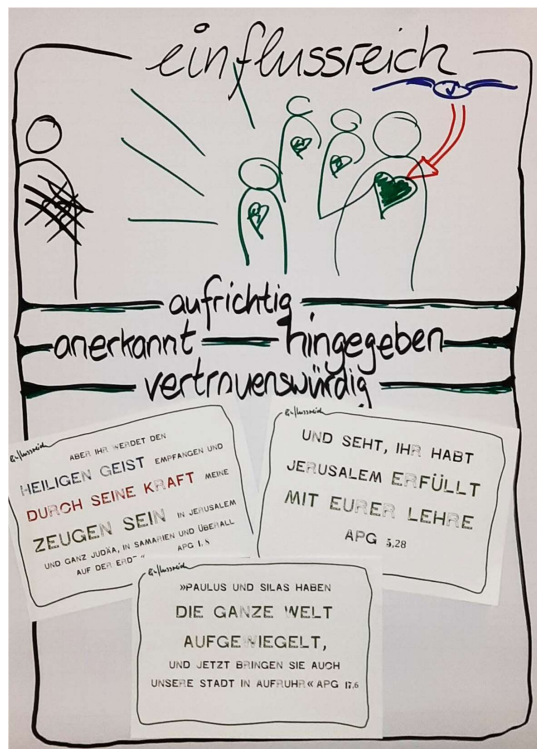 einflussreich
aufrichtig
anerkannt hingegeben
vertrauenswürdig
Einflussreich
ABER IHR WERDET DEN
HEILIGEN GEIST EMPFANGEN UND
DURCH SEINE KRAFT MEINE
ZEUGEN SEIN IN JERUSALEM
UND GANZ JUDÄA, IN SAMARIEN UND ÜBERALL
AUF DER ERDE" APG 1,8
Einflussreich
UND SEHT, IHR HABT
JERUSALEM ERFÜLLT
MIT EURER LEHRE
APG 5,28
Einflussreich
»PAULUS UND SILAS HABEN
DIE GANZE WELT
AUFGEWIEGELT,
UND JETZT BRINGEN SIE AUCH
UNSERE STADT IN AUFRUHR« APG 17,6